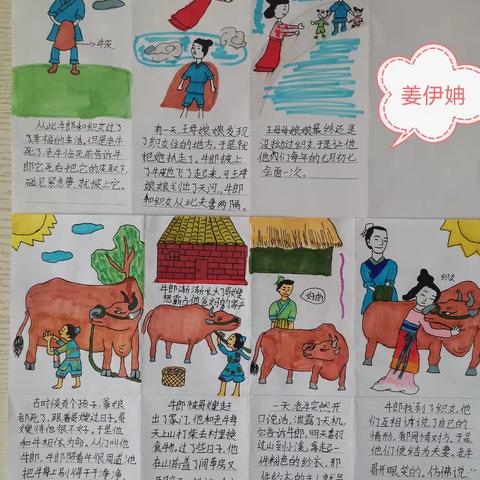 牛皮
从此牛郎和织女过了
幸福的生活。但是老牛
死了，老牛临死前告诉牛
郎它死后把它的皮取下，
碰见紧急事，就披上它。
有一天，王母娘娘发现
了织女住的地方，于是就
把她抓走了。牛郎披上
了牛皮也飞了起来，可王母
娘娘划出了天河，牛郎
和织女从此夫妻两隔。
王母娘娘最终还是
没拗过织女，于是让他
他们每年的七月初七
会面一次。
姜伊姌
牛郎渐渐长大了哥嫂
想霸占他爸妈的家产
好的
织女
古时候有个孩子，爹娘
都死了，跟着哥嫂过日子。哥
嫂待他很不好。于是他
和牛相依为命。人们叫他
牛郎。牛郎照看牛很周道，他
把牛身上刷得干干净净
牛郎被哥嫂赶
出了家门，他和老牛每
天上山打柴去村里换
食物。过了些日子，他
在山前盖了间草房又
一天，老牛突然开
口说话，泄露了天机。
它告诉牛郎，明天黄昏
过山到小溪，拿起一
件粉色的纱衣，那
牛郎找到了织女，他
们互相诉说了自己的
情形，都同情对方，于是
他们便结为夫妻。老牛
眉开眼笑的。仿佛说